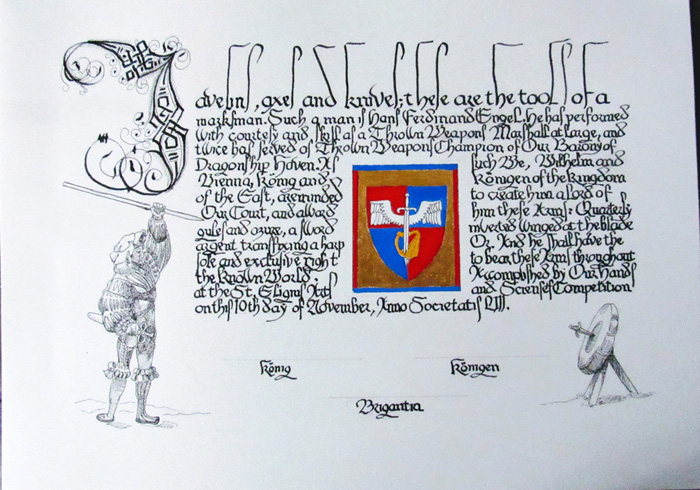 Javelins, axes and knives; these are the tools of a
marksman. Such a man is Hans Ferdinand Engel. He has performed
with courtesy and skill as a Thrown Weapons Marshall at Large, and
twice has served as Thrown Weapons Champion of Our Barony of
Dragonship Haven. As such We, Wilhelm and
Vienna, König and Königen of the kingdom
of the East, are minded to create him a Lord of
Our Court, and award him these Arms: Quarterly
gules and azure, a sword inverted winged at the blade
argent transfixing a harp Or. And he shall have the
sole and exclusive right to bear these Arms throughout
the Known World. Acomplished by Our Hands
at the St. Eligius Arts and Scienses Competition
on this 10th day of November, Anno Societatis LIII.
König Königen
Brigantia